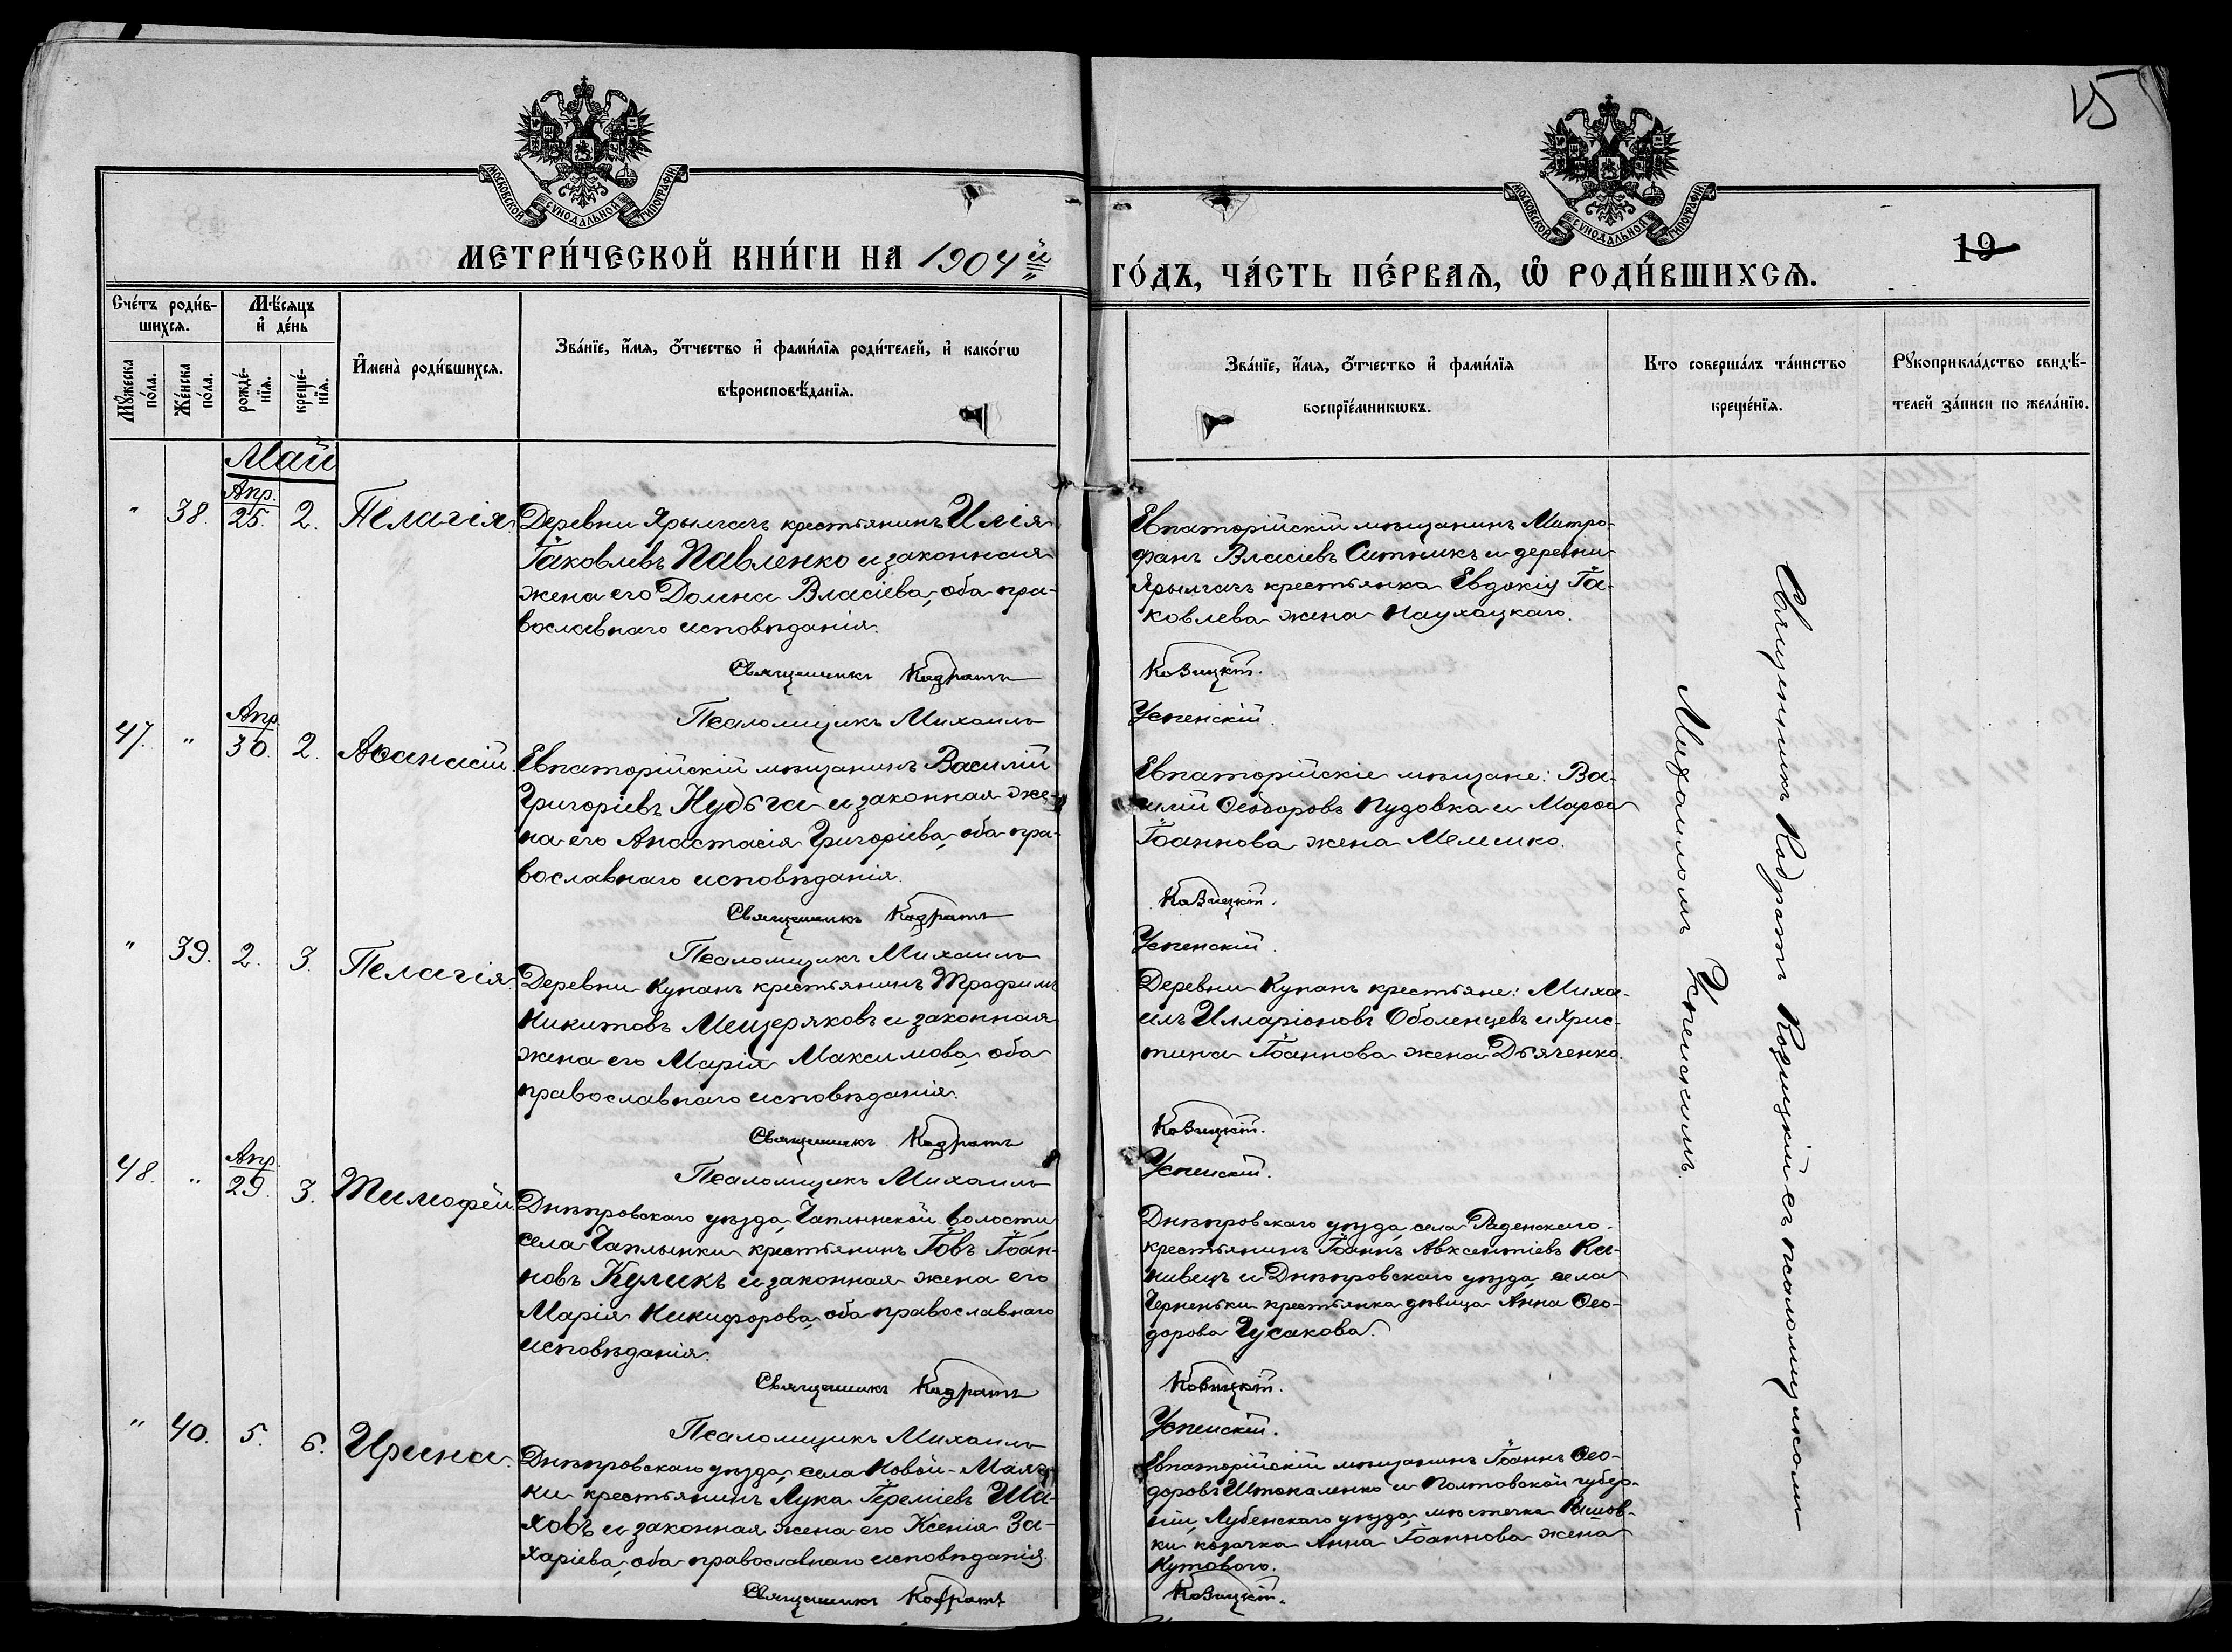 15
МОСКОВСКОЙ СѴНОДАЛЬНОЙ ТИПОГРАФІИ
МОСКОВСКОЙ СѴНОДАЛЬНОЙ ТИПОГРАФІИ
19
МЕТРИ́ЧЕСКОЙ КНИ́ГИ НА 1904й
ГО́ДЪ, ЧА́СТЬ ПЕ́РВАЯ, Ѡ РОДИ́ВШИХСЯ.
Сче́тъ роди́в-
шихся.
Мѣ́сяцъ
и де́нь
Мꙋ́жеска
по́ла.
Же́нска
по́ла.
рожде́-
нїя.
креще́-
нїя.
И҆мена̀ роди́вшихся.
Зва́нїе, и҆́мя, ѻ҆́тчество и҆ фами́лїя роди́телей, и҆ како́гѡ
вѣроисповѣ́данїя.
Зва́нїе, и҆́мя, ѻ҆́тчество и҆ фами́лїя
воспрїе́мникѡвъ.
Кто соверша́лъ та́инство
креще́нїя.
Рꙋкоприкла́дство свидѣ́-
телей за́писи по жела́нїю.
Май
" 38. Апр. 25. 2. Пелагія.
Деревни Ярылгачъ крестьянинъ Илія
Іаковлевъ Павленко и законная
жена его Домна Власіева, оба пра-
вославнаго исповѣданія.
Священникъ Кодратъ
Псаломщикъ Михаилъ
Евпаторійскій мѣщанинъ Митро-
фанъ Власіевъ Ситникъ и деревни
Ярылгачъ крестьянка Евдокія Іа-
ковлева жена Наухацкаго.
Козицкій.
Успенскій.
47. " Апр. 30. 2. Аѳанасій.
Евпаторійскій мѣщанинъ Василій
Григоріевъ Кудьга и законная же-
на его Анастасія Григоріева, оба пра-
вославнаго исповѣданія.
Священникъ Кодратъ
Псаломщикъ Михаилъ
Евпаторійскіе мѣщане: Ва-
силій Ѳеодоровъ Пудовка и Марѳа
Іоаннова жена Мемешко.
Козицкій.
Успенскій.
" 39. 2. 3. Пелагія.
Деревни Кунанъ крестьянинъ Трофимъ
Никитовъ Мещеряковъ и законная
жена его Марія Максимова, оба
православнаго исповѣданія.
Священникъ Кодратъ
Псаломщикъ Михаилъ
Деревни Кунанъ крестьяне: Миха-
илъ Илларіоновъ Оболенцевъ и Хрис-
тина Іоаннова жена Дьяченко.
Козицкій.
Успенскій.
48. " Апр. 29. 3. Тимофей.
Днѣпровскаго уѣзда, Чаплинской волости,
села Чаплынки крестьянинъ Іовъ Іоан-
новъ Куликъ и законная жена его
Марія Никифорова, оба православнаго
исповѣданія.
Священникъ Кодратъ
Псаломщикъ Михаилъ
Днѣпровскаго уѣзда, села Раденскаго
крестьянинъ Іоаннъ Авксентіевъ Ка-
нивецъ и Днѣпровскаго уѣзда, села
Черненьки крестьянка дѣвица Анна Ѳео-
дорова Гусакова.
Козицкій.
Успенскій.
" 40. 5. 6. Ирина.
Днѣпровскаго уѣзда, села Новой-Маяч-
ки крестьянинъ Лука Іереміевъ Ша-
ховъ и законная жена его Ксенія За-
харіева, оба православнаго исповѣданія.
Священникъ Кодратъ
Евпаторійскій мѣщанинъ Іоаннъ Ѳео-
доровъ Штокаленко и Полтавской губер-
ніи, Лубенскаго уѣзда, мѣстечка
ки козачка Анна Іоаннова жена
Кутоваго.
Козицкій.
Священникъ Кодратъ Козицкій съ псаломщикомъ
Михаиломъ Успенскимъ.